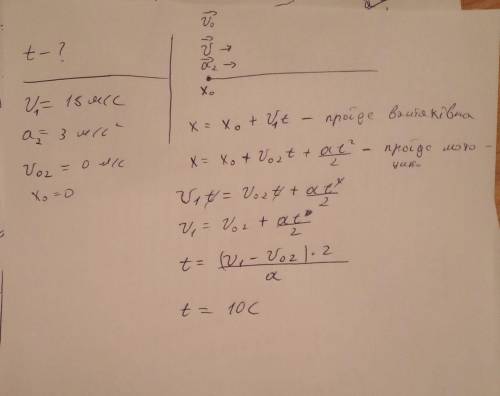 t - ?
v₁ = 15 м/с
a₂ = 3 м/с²
v₀₂ = 0 м/с
x₀ = 0
v⃗₀
v⃗ →
a⃗₂ →
x₀
x = x₀ + v₁t - проїде вантажівка
x = x₀ + v₀₂t + at²/2 - проїде мото-
цик.
v₁t = v₀₂t + at²/2
v₁ = v₀₂ + at/2
t = (v₁ - v₀₂)·2/a
t = 10 с